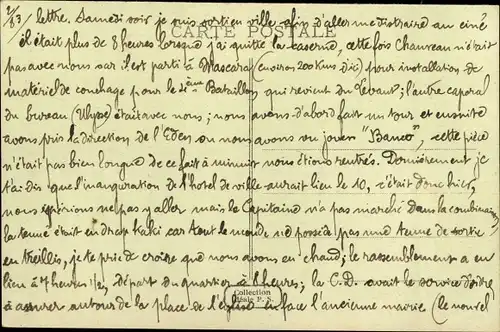 2/83 / lettre. Samedi soir je suis sorti en ville afin d'aller me distraire au ciné
CARTE POSTALE
il était plus de 8 heures lorsque j'ai quitté la caserne, cette fois Chauveau n'était
pas avec nous car il est parti à Mascara (environ 200 Kms d'ici) pour installation de
matériel de couchage pour le 2ième Bataillon qui revient du Levant; l'autre caporal
du bureau (Ulysse) était avec nous; nous avons d'abord fait un tour et ensuite
avons pris la direction de l'Eden où nous avons vu jouer "Banco", cette pièce
n'était pas bien longue de ce fait à minuit nous étions rentrés. Dernièrement je
t'ai dis que l'inauguration de l'hotel de ville aurait lieu le 10, c'était donc hier,
nous espérions ne pas y aller mais le Capitaine n'a pas marché dans la combinaison,
la tenue était en drap Kaki car tout le monde ne possède pas une tenue de sortie
en treillis, je te prie de croire que nous avons eu chaud; le rassemblement a eu
lieu à 7 heures 1/2, départ du quartier à 8 heures; la C.D. avait le service d'ordre
à assurer autour de la place de l'église en face l'ancienne mairie (le nouvel
Collection
Idéale P. S.